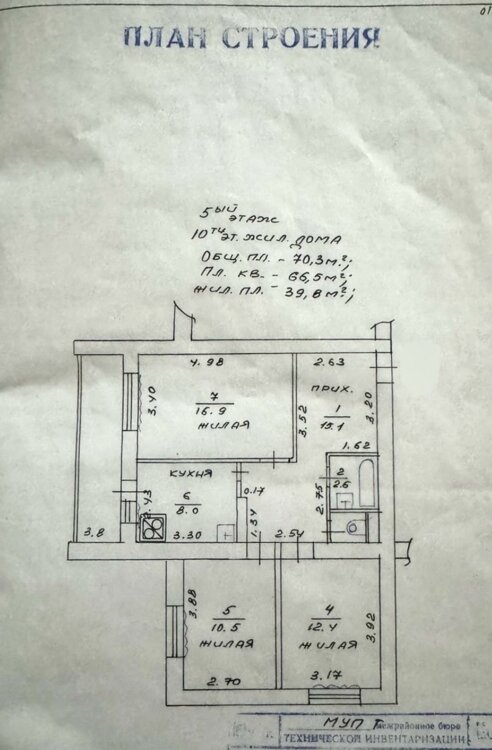 01
ПЛАН СТРОЕНИЯ
5ый
ЭТАЖ
10ти эт. жил. дома
Общ. пл. - 70,3 м²;
Пл. кв. - 66,5 м²;
Жил. пл. - 39,8 м²;
4.98
2.63
прих.
3.40
7
16.9
жилая
3.52
1
15.1
3.20
1.62
кухня
2
2.6
6
8.0
0.17
2.43
2.75
3.8
3.30
1.34
2.54
3.88
5
10.5
жилая
4
12.4
жилая
3.92
2.70
3.17
МУП
Межрайонное бюро
ТЕХНИЧЕСКОЙ ИНВЕНТАРИЗАЦИИ